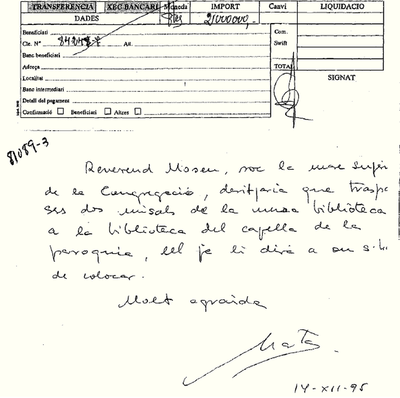 TRANSFERÈNCIA XEC BANCARI Moneda IMPORT Canvi LIQUIDACIO
DADES Ptes 21000000,
Beneficiari Com.
Cte. Nº At. Swift
Banc beneficiari
Adreça TOTAL
Localitat SIGNAT
Banc intermediari
Detall del pagament
Confirmació Beneficiari Altres
81089-3
Reverend Mossen, soc la mare superi
de la Congregació, desitjaria que traspa
sés dos misals de la meva biblioteca
a la biblioteca del capella de la
parroquia, ell ja li dira a on s. hi.
de colocar.
Molt agraida
Marta.
14-XII-95